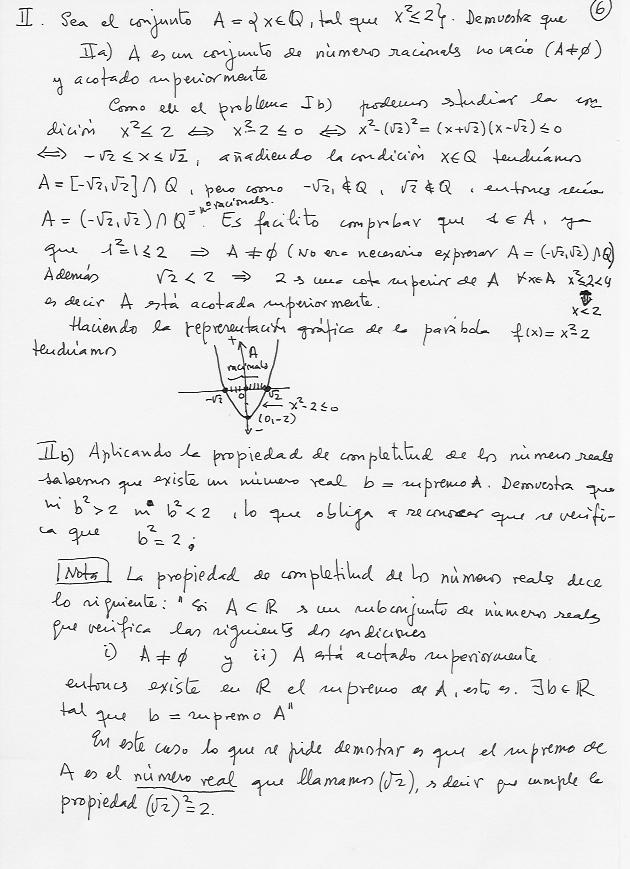 6
II. Sea el conjunto A = { x ∈ Q, tal que x² ≤ 2 }. Demuestra que
IIa) A es un conjunto de números racionals no vacío (A ≠ ∅)
y acotado superiormente
Como en el problema Ib) podemos estudiar la con
dición x² ≤ 2 ⟺ x² - 2 ≤ 0 ⟺ x² - (√2)² = (x+√2)(x-√2) ≤ 0
⟺ -√2 ≤ x ≤ √2, añadiendo la condición x ∈ Q tendríamos
A = [-√2, √2] ∩ Q, pero como -√2 ∉ Q, √2 ∉ Q, entonces sería
A = (-√2, √2) ∩ Q = nº racionals. Es facilito comprobar que 1 ∈ A, ya
que 1² = 1 ≤ 2 ⟹ A ≠ ∅ (No era necesario expresar A = (-√2, √2) ∩ Q)
Además √2 < 2 ⟹ 2 es una cota superior de A ∀x∈A x² ≤ 2 < 4
es decir A está acotada superiormente. ⇓ x < 2
Haciendo la representación gráfica de la parábola f(x) = x² - 2
tendríamos
+ A
racionals
-√2 0 √2 ← x² - 2 ≤ 0
(0, -2)
-
IIb) Aplicando la propiedad de completitud de los número reals
sabemos que existe un número real b = supremo A. Demuestra que
ni b² > 2 ni b² < 2, lo que obliga a reconocer que se verifi-
ca que b² = 2;
Nota La propiedad de completitud de los números reals dece
lo siguiente: " Si A ⊂ R es un subconjunto de números reals
que verifica las siguients dos condiciones
i) A ≠ ∅ y ii) A está acotado superiormente
entoncs existe en R el supremo de A, esto es. ∃ b ∈ R
tal que b = supremo A"
En este caso lo que se pide demostrar es que el supremo de
A es el número real que llamamos (√2), es decir que cumple la
propiedad (√2)² = 2.